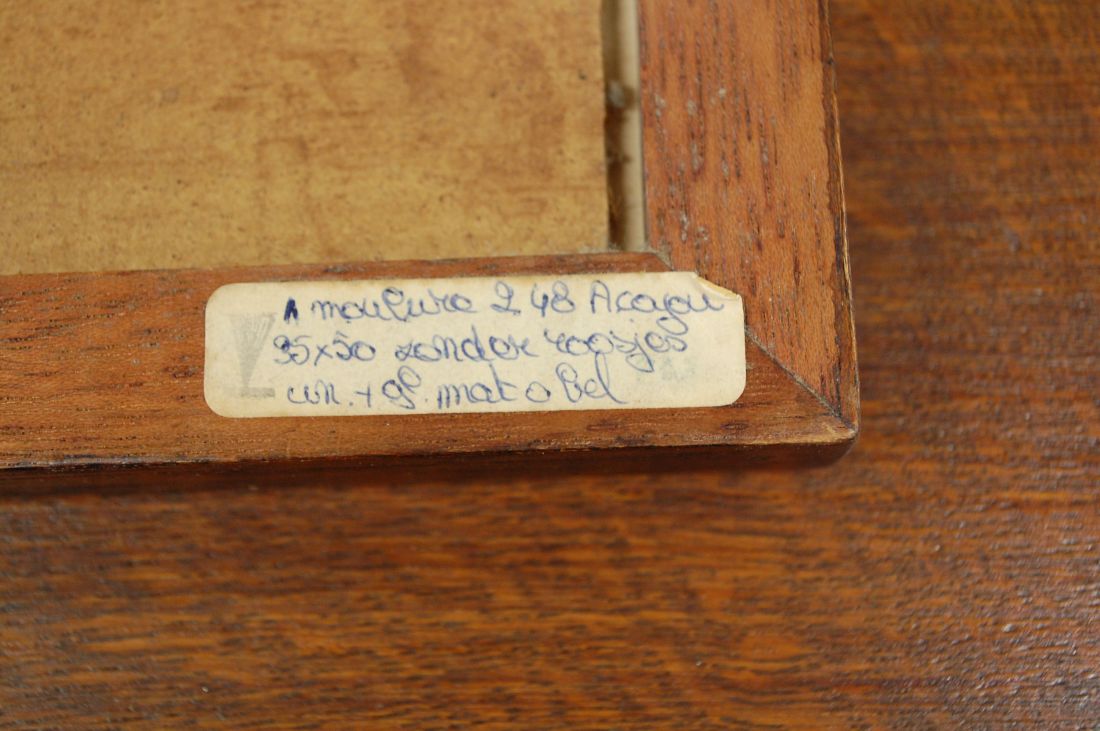 1 moulure 248 Acajou
35x50 zonder roosjes
un. + gl. mat obel